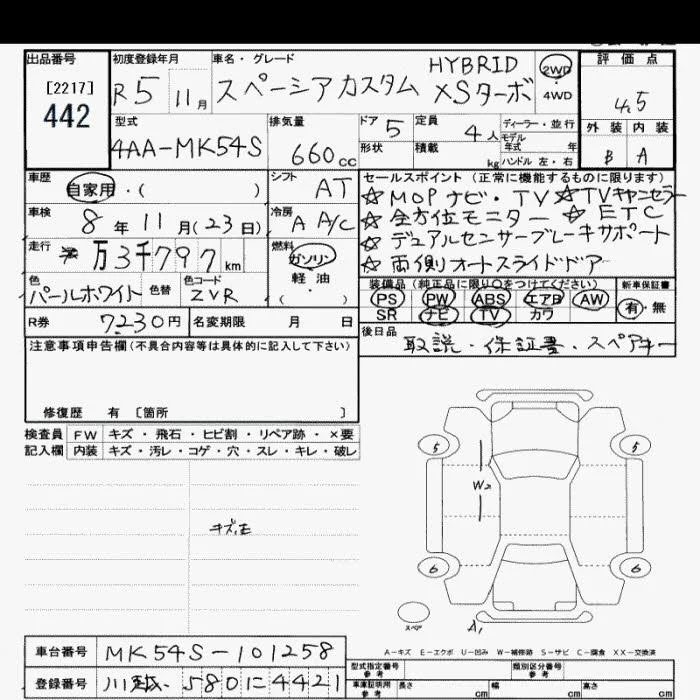 出品番号
[2217]
442
初度登録年月
R5 11月
車名・グレード
スペーシアカスタム HYBRID XSターボ
2WD
4WD
評価点
4.5
外装 内装
B A
型式
4AA-MK54S
排気量
660cc
ドア 5
形状
定員 4人
積載 kg
ディーラー・並行
モデル年式 年
ハンドル 左・右
車歴
自家用・( )
シフト
AT
車検
8年11月(23日)
冷房
A A/C
走行
万3千797km
燃料
ガソリン
・
軽油
( )
色
パールホワイト
色替
色コード
ZVR
セールスポイント(正常に機能するものに限ります)
☆MOPナビ・TV ☆TVキャンセラー
☆全方位モニター ☆ETC
☆デュアルセンサーブレーキサポート
☆両側オートスライドドア
装備品(純正品に限り〇をつけてください)
PS PW ABS エアB AW
SR ナビ TV カワ
新車保証書
有・無
R券 7230円
名変期限 月 日
後日品
取説・保証書・スペアキー
注意事項申告欄(不具合内容等は具体的に記入して下さい)
修復歴 有 〔箇所 〕
検査員
記入欄
FW キズ・飛石・ヒビ割・リペア跡・×要
内装 キズ・汚レ・コゲ・穴・スレ・キレ・破レ
5
5
W2
6
6
スペア
A1
A-キズ E-エクボ U-凹み W-補修跡 S-サビ C-腐食 XX-交換済
車台番号 MK54S-101258
登録番号 川越 580に4421
型式指定番号
参考
類別区分番号
参考
車庫証明用
参考
長さ cm 幅 cm 高さ cm